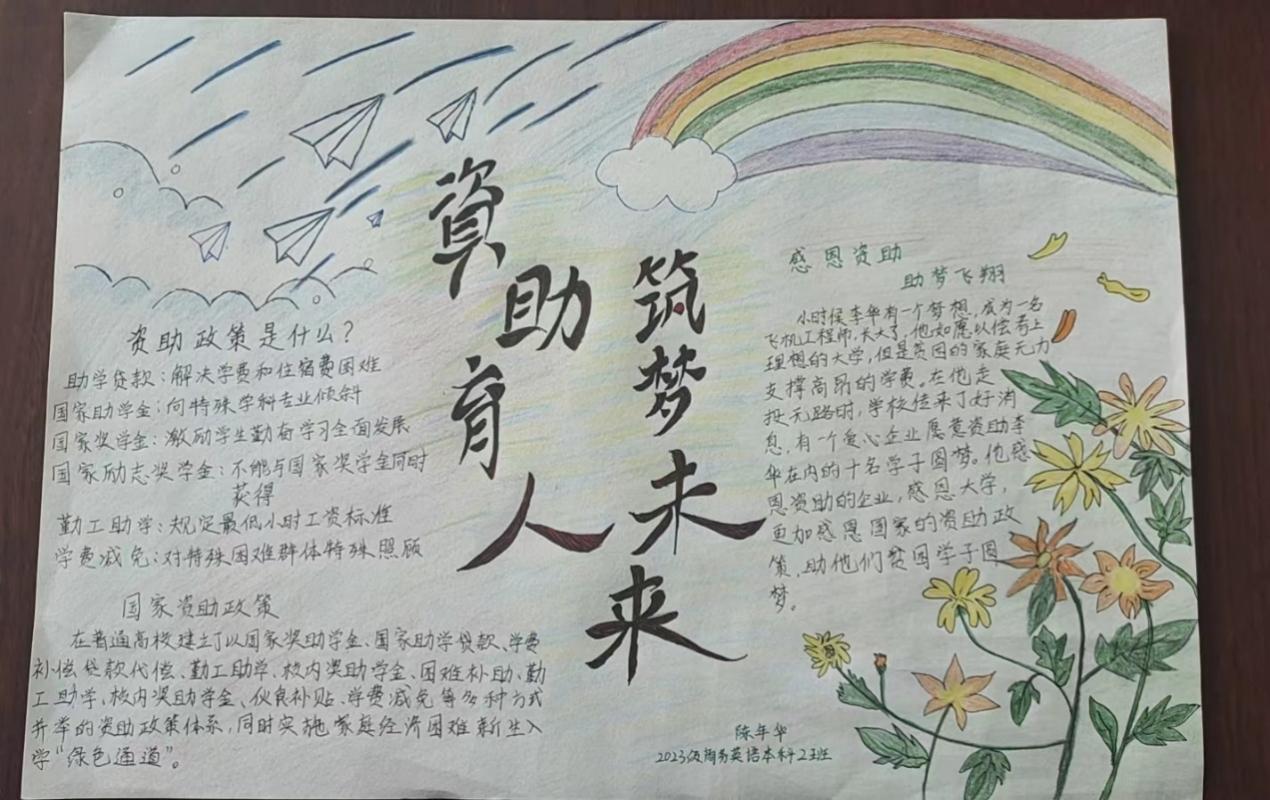 資助育人
筑梦未来
资助政策是什么？
助学贷款：解决学费和住宿费困难
国家助学金：向特殊学科专业倾斜
国家奖学金：激励学生勤奋学习全面发展
国家励志奖学金：不能与国家奖学金同时
获得
勤工助学：规定最低小时工资标准
学费减免：对特殊困难群体特殊照顾
国家资助政策
在普通高校建立了以国家奖助学金、国家助学贷款、学费
补偿贷款代偿、勤工助学、校内奖助学金、困难补助、勤
工助学、校内奖助学金、伙食补贴、学费减免等多种方式
并举的资助政策体系，同时实施家庭经济困难新生入
学“绿色通道”。
感恩资助
助梦飞翔
小时候李华有一个梦想，成为一名
飞机工程师，长大了，他如愿以偿考上
理想的大学，但是贫困的家庭无力
支撑高昂的学费。在他走
投无路时，学校传来了好消
息，有一个爱心企业愿意资助李
华在内的十名学子圆梦。他感
恩资助的企业，感恩大学，
更加感恩国家的资助政
策，助他们贫困学子圆
梦。
陈年华
2023级商务英语本科2班